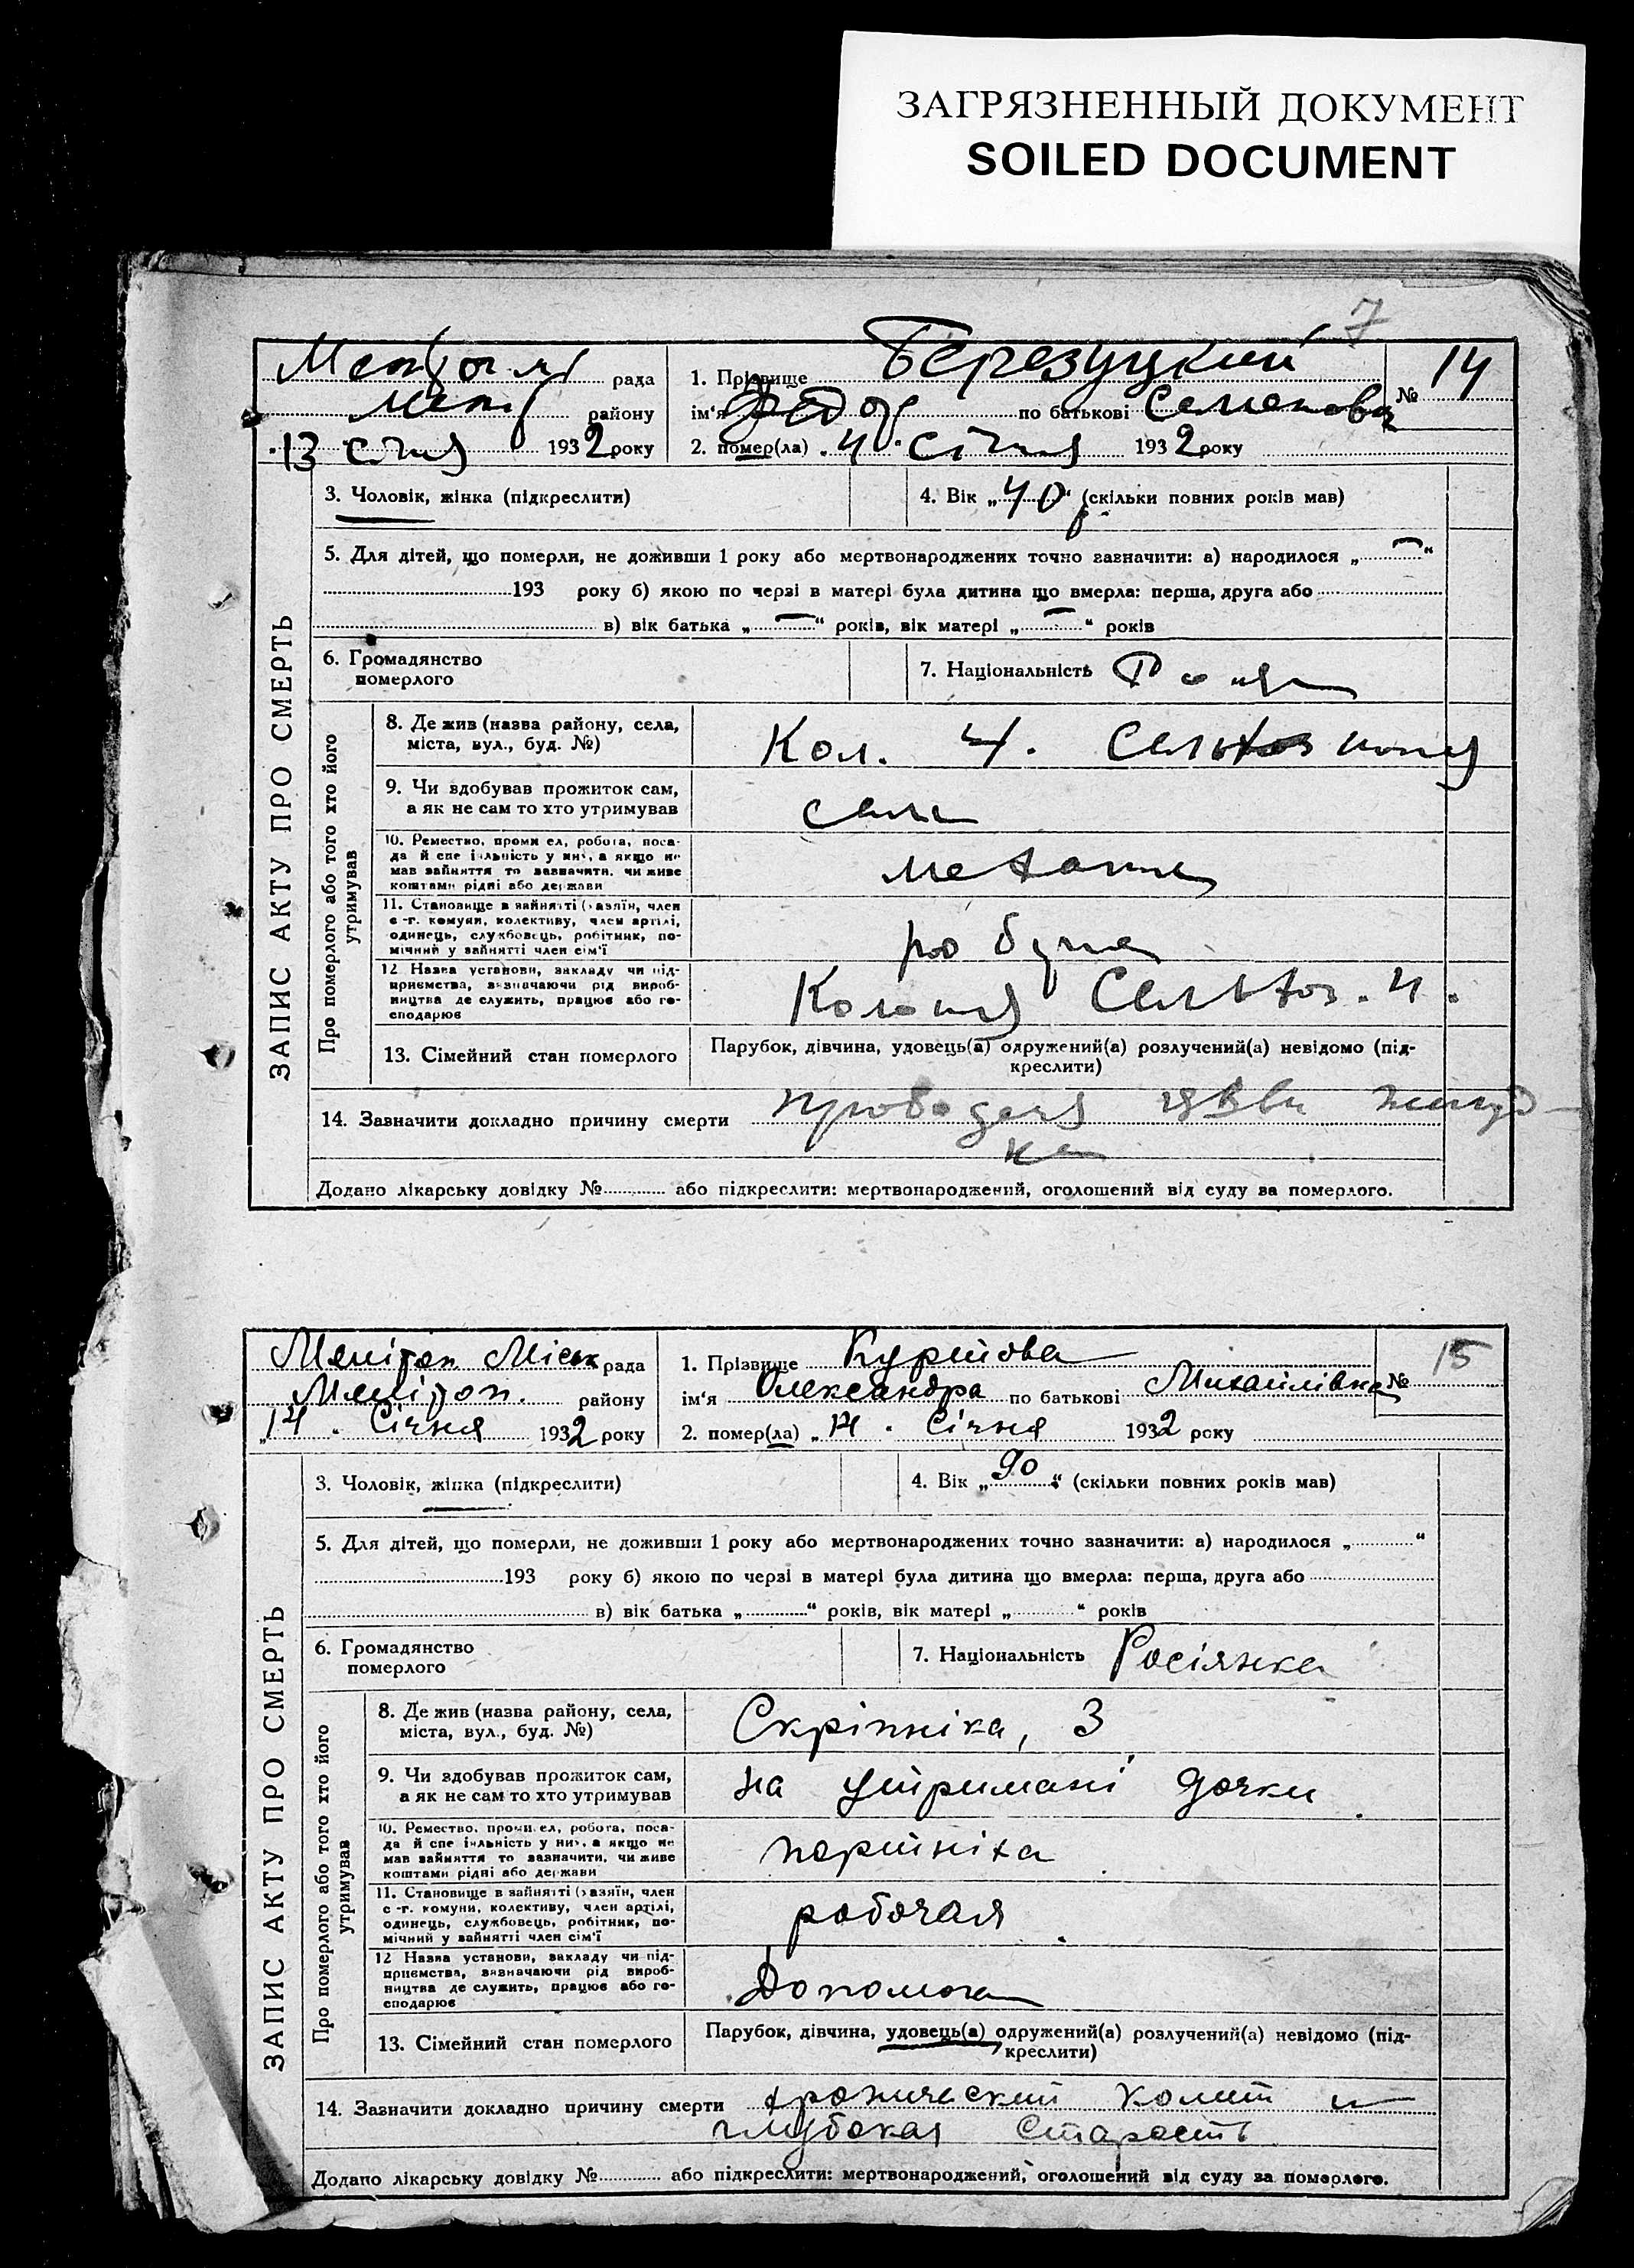 ЗАГРЯЗНЕННЫЙ ДОКУМЕНТ
SOILED DOCUMENT
7
рада
району
13 січня 1932 року
1. Прізвище Березуцкий
ім‘я Федор по батькові Семенович
№ 14
2. помер(ла) 4 січня 1932 року
ЗАПИС АКТУ ПРО СМЕРТЬ
3. Чоловік, жінка (підкреслити)
4. Вік „40“ (скільки повних років мав)
5. Для дітей, що померли, не доживши 1 року або мертвонароджених точно зазначити: а) народилося „—“
193 року б) якою по черзі в матері була дитина що вмерла: перша, друга або
в) вік батька „—“ років, вік матері „—“ років
6. Громадянство померлого
7. Національність
Про померлого або того хто його утримував
8. Де жив (назва району, села,
міста, вул., буд. №)
Кол. 4.
9. Чи здобував прожиток сам,
а як не сам то хто утримував
сам
10. Ремество, промисел, робота, поса-
да й спеціяльність у них, а якщо не
мав зайняття то зазначити, чи живе
коштами рідні або держави
механик
11. Становище в зайнятті (хазяїн, член
с.-г. комуни, колективу, член артілі,
одинець, службовець, робітник, по-
мічний у зайнятті член сім‘ї
12 Назва установи, закладу чи під-
приємства, зазначаючи рід вироб-
ництва де служить, працює або го-
сподарює
Колония Сельхоз. 4.
13. Сімейний стан померлого
Парубок, дівчина, удовець(а) одружений(а) розлучений(а) невідомо (під-
креслити)
14. Зазначити докладно причину смерти язви желуд-
ка
Додано лікарську довідку № або підкреслити: мертвонароджений, оголошений від суду за померлого.
Меліտоп Міськ рада
Меліտոп. району
„14. Січня 1932 року
1. Прізвище Куртова
ім‘я Олександра по батькові Михайлівна
№ 15
2. помер(ла) „14. Січня 1932 року
ЗАПИС АКТУ ПРО СМЕРТЬ
3. Чоловік, жінка (підкреслити)
4. Вік „90“ (скільки повних років мав)
5. Для дітей, що померли, не доживши 1 року або мертвонароджених точно зазначити: а) народилося „“
193 року б) якою по черзі в матері була дитина що вмерла: перша, друга або
в) вік батька „“ років, вік матері „“ років
6. Громадянство померлого
7. Національність Росіянка
Про померлого або того хто його утримував
8. Де жив (назва району, села,
міста, вул., буд. №)
Скріпніка, 3
9. Чи здобував прожиток сам,
а як не сам то хто утримував
на утримані дочки
10. Ремество, промисел, робота, поса-
да й спеціяльність у них, а якщо не
мав зайняття то зазначити, чи живе
коштами рідні або держави
портніха
11. Становище в зайнятті (хазяїн, член
с.-г. комуни, колективу, член артілі,
одинець, службовець, робітник, по-
мічний у зайнятті член сім‘ї
робочая
12 Назва установи, закладу чи під-
приємства, зазначаючи рід вироб-
ництва де служить, працює або го-
сподарює
Допомога
13. Сімейний стан померлого
Парубок, дівчина, удовець(а) одружений(а) розлучений(а) невідомо (під-
креслити)
14. Зазначити докладно причину смерти хронический колит и
глубокая старость
Додано лікарську довідку № або підкреслити: мертвонароджений, оголошений від суду за померлого.